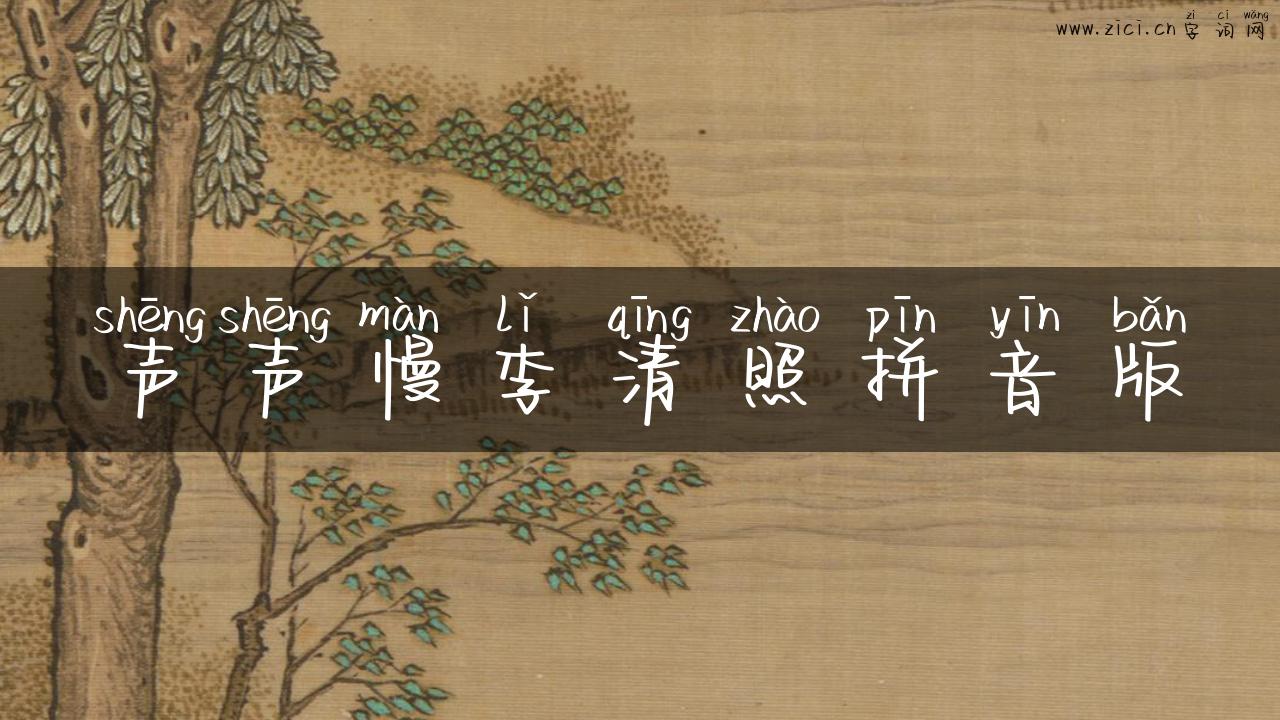 zì cí wǎng
www.zici.cn 字词网
shēng shēng màn lǐ qīng zhào pīn yīn bǎn
声声慢李清照拼音版